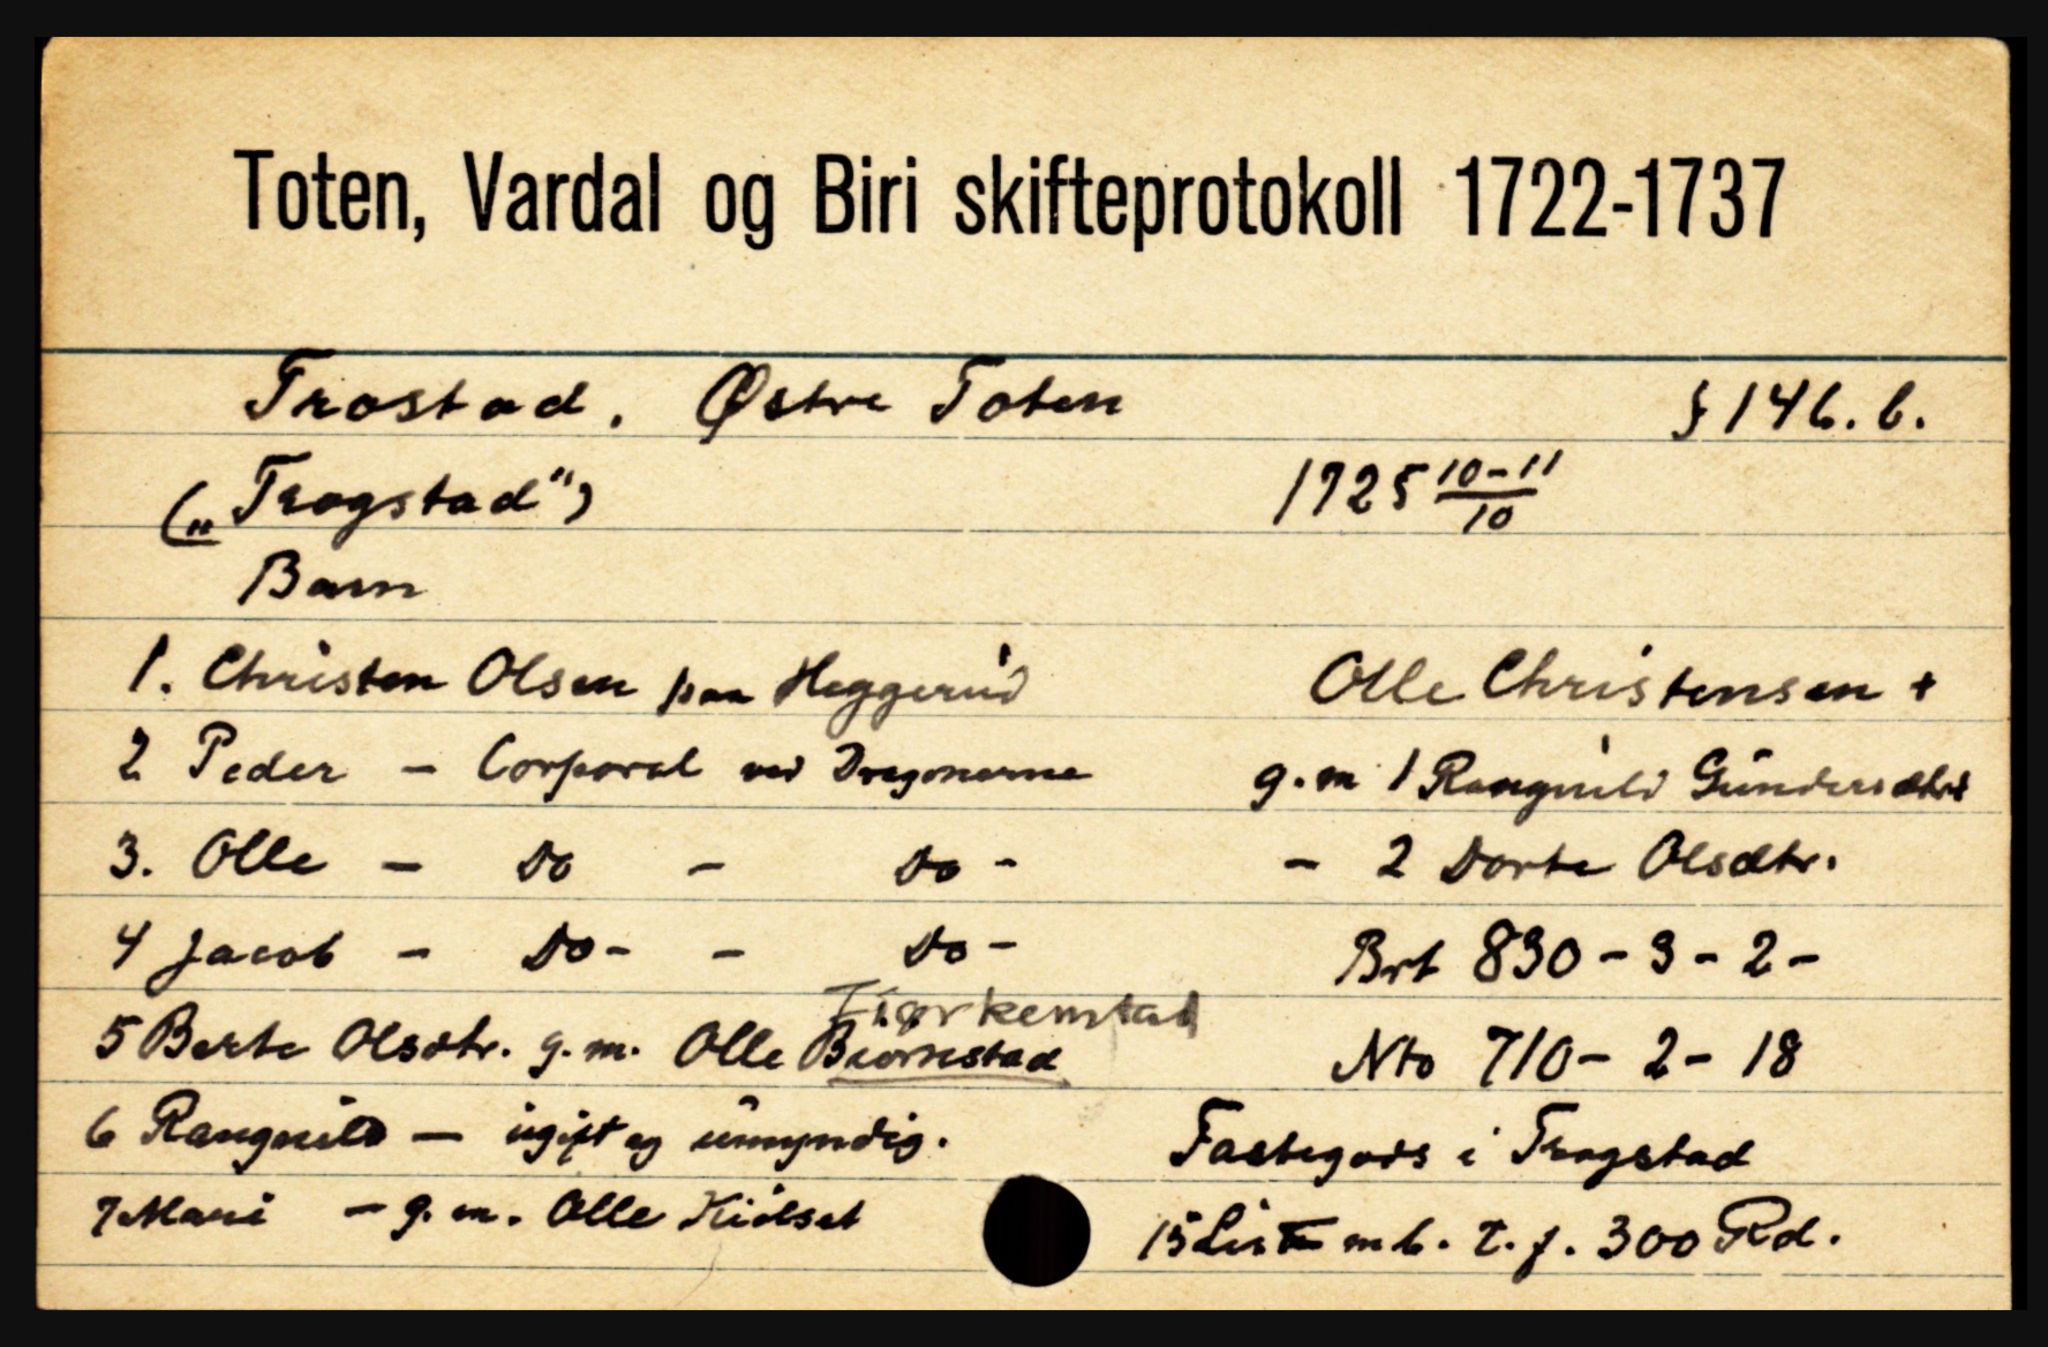 Toten, Vardal og Biri skifteprotokoll 1722-1737
Trostad. Østre Toten § 146. b.
(„Trogstad") 1725 10-11/10
Barn
1. Christen Olsen paa Heggerud Olle Christensen +
2 Peder - Corporal ved Dragonerne g.m 1 Rangnild Gundersdtr +
3. Olle - Do - Do - - 2 Dorte Olsdtr.
4 Jacob - Do - - Do - Brt 830-3-2-
Fiørkenstad
5 Berte Olsdtr. g.m. Olle Biørnestad Nto 710-2-18
6 Rangnild - ugift og umyndig. Fastegods i Trogstad
7 Mari - g.m. Olle Kiölset 15 m b. t. f. 300 Rd.